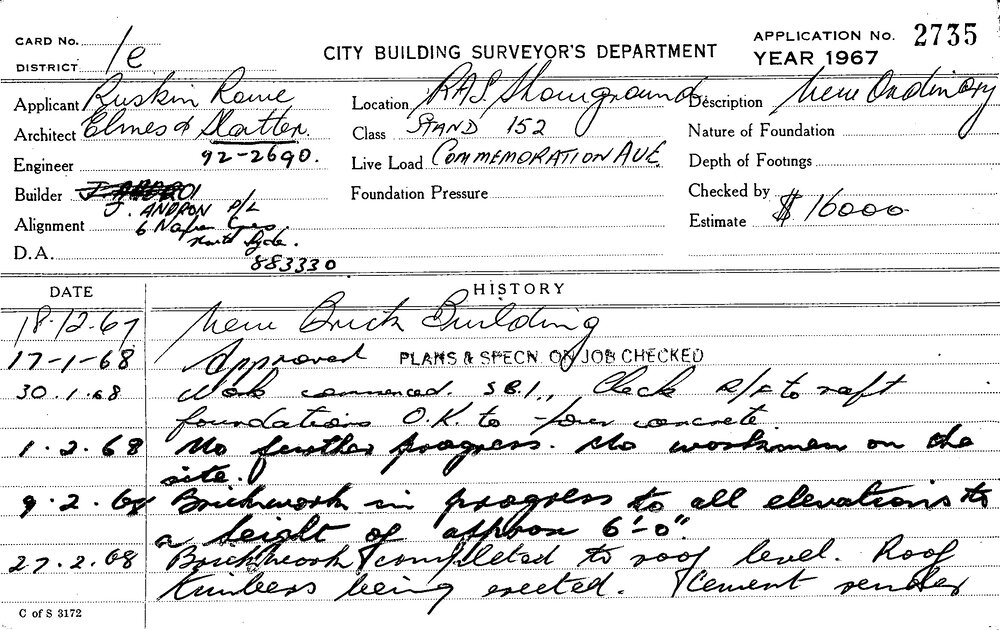 CARD No. 1e
DISTRICT
CITY BUILDING SURVEYOR'S DEPARTMENT
APPLICATION No. 2735
YEAR 1967
Applicant Ruskin Rowe Location RAS. Showground Description New Ordinary
Architect Elmes & Slatter. Class STAND 152 Nature of Foundation
Engineer 92-2690. Live Load COMMEMORATION AVE. Depth of Footings
Builder Foundation Pressure Checked by
J. ANDRON P/L
Alignment 6 Napier Cres Estimate $16000
North Ryde.
D.A. 883330
DATE HISTORY
18.12.67 New Brick Building
17-1-68 Approved PLANS & SPECN. ON JOB CHECKED
30.1.68 Work commenced. S.B.I., Check R/F to raft
foundations O.K. to pour concrete.
1.2.68 No further progress. No workmen on the
site.
9.2.68 Brickwork in progress to all elevations to
a height of approx 6'-0".
27.2.68 Brickwork completed to roof level. Roof
timbers being erected. Cement render
C of S 3172